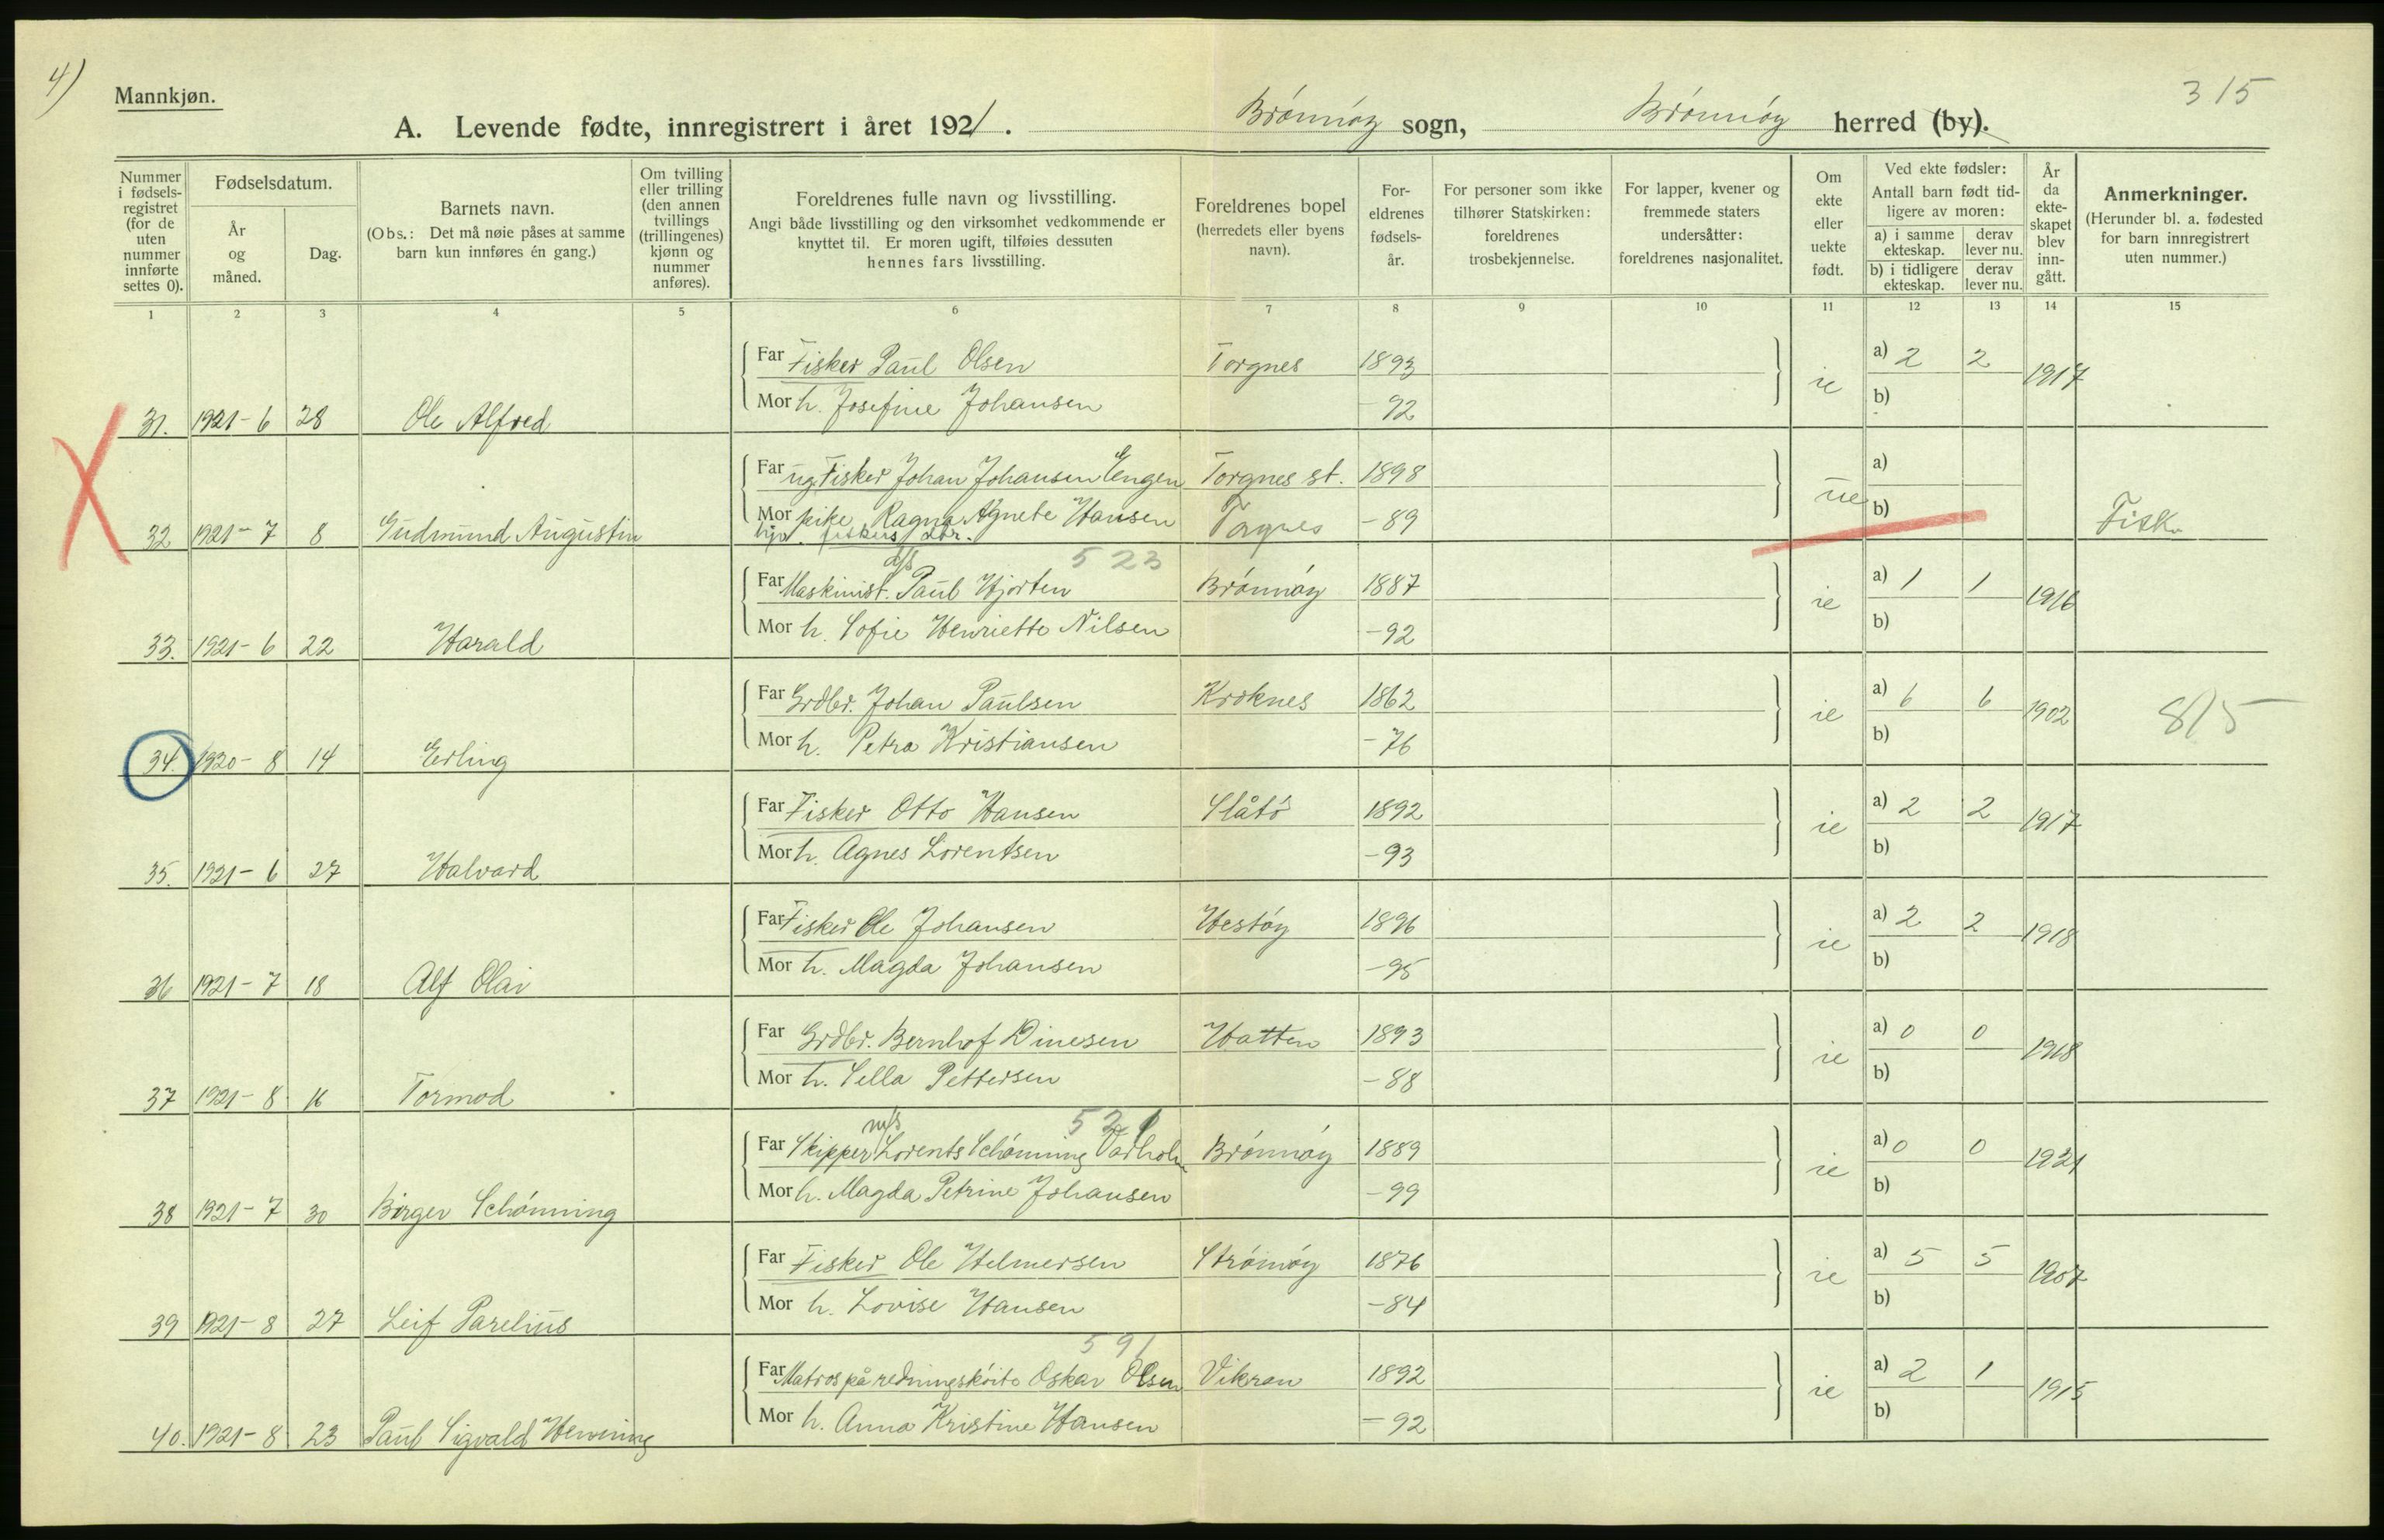 4)
Mannkjøn.
315
A. Levende fødte, innregistrert i året 1921. Brönnöy sogn, Brönnöy herred (by).
Nummer i fødsels-registret (for de uten nummer innførte settes 0).
Fødselsdatum.
År og måned.
Dag.
Barnets navn.
(Obs.: Det må nøie påses at samme barn kun innføres én gang.)
Om tvilling eller trilling (den annen tvillings (trillingenes) kjønn og nummer anføres).
Foreldrenes fulle navn og livsstilling.
Angi både livsstilling og den virksomhet vedkommende er knyttet til. Er moren ugift, tilføies dessuten hennes fars livsstilling.
Foreldrenes bopel (herredets eller byens navn).
For-eldrenes fødsels-år.
For personer som ikke tilhører Statskirken: foreldrenes trosbekjennelse.
For lapper, kvener og fremmede staters undersåtter: foreldrenes nasjonalitet.
Om ekte eller uekte født.
Ved ekte fødsler: Antall barn født tid-ligere av moren:
a) i samme ekteskap. derav lever nu.
b) i tidligere ekteskap. derav lever nu.
År da ekte-skapet blev inn-gått.
Anmerkninger.
(Herunder bl. a. fødested for barn innregistrert uten nummer.)
1 2 3 4 5 6 7 8 9 10 11 12 13 14 15
Far Fisker Paul Olsen Torgnes 1893 a) 2 2
31. 1921-6 28 Ole Alfred Mor h. Josefine Johansen -92 ie b) 1917
Far ug. Fisker Johan Johansen Engen Torgnes st. 1898 a)
32 1921-7 8 Gudmund Augustin Mor pike Ragna Agnete Hansen -89 ue b) Fisk.
fiskers dtr.
523
Far Maskinist. Paul Hjorten Brönnöy 1887 a) 1 1
33. 1921-6 22 Harald Mor h. Sofie Henriette Nilsen -92 ie b) 1916
Far Grdbr. Johan Paulsen Kroknes 1862 a) 6 6
34. 1920-8 14 Erling Mor h. Petra Kristiansen -76 ie b) 1902 8/5
Far Fisker Otto Hansen Slåtö 1892 a) 2 2
35. 1921-6 27 Halvard Mor h. Agnes Lorentsen -93 ie b) 1917
Far Fisker Ole Johansen Hestöy 1896 a) 2 2
36 1921-7 18 Alf Olai Mor h. Magda Johansen -95 ie b) 1918
Far Grdbr. Bernhof Dinesen Hatten 1893 a) 0 0
37 1921-8 16 Tormod Mor h. Sella Pettersen -88 ie b) 1918
m/s 521
Far Skipper Lorents Schönning Varholm Brönnöy 1889 a) 0 0
38 1921-7 30 Birger Schönning Mor h. Magda Petrine Johansen -99 ie b) 1921
Far Fisker Ole Helmersen Strömöy 1876 a) 5 5
39 1921-8 27 Leif Parelius Mor h. Lovise Hansen -84 ie b) 1907
591
Far Matros på redningsköite Oskar Olsen Vikran 1892 a) 2 1
40. 1921-8 23 Paul Sigvald Henning Mor h. Anna Kristine Hansen -92 ie b) 1915